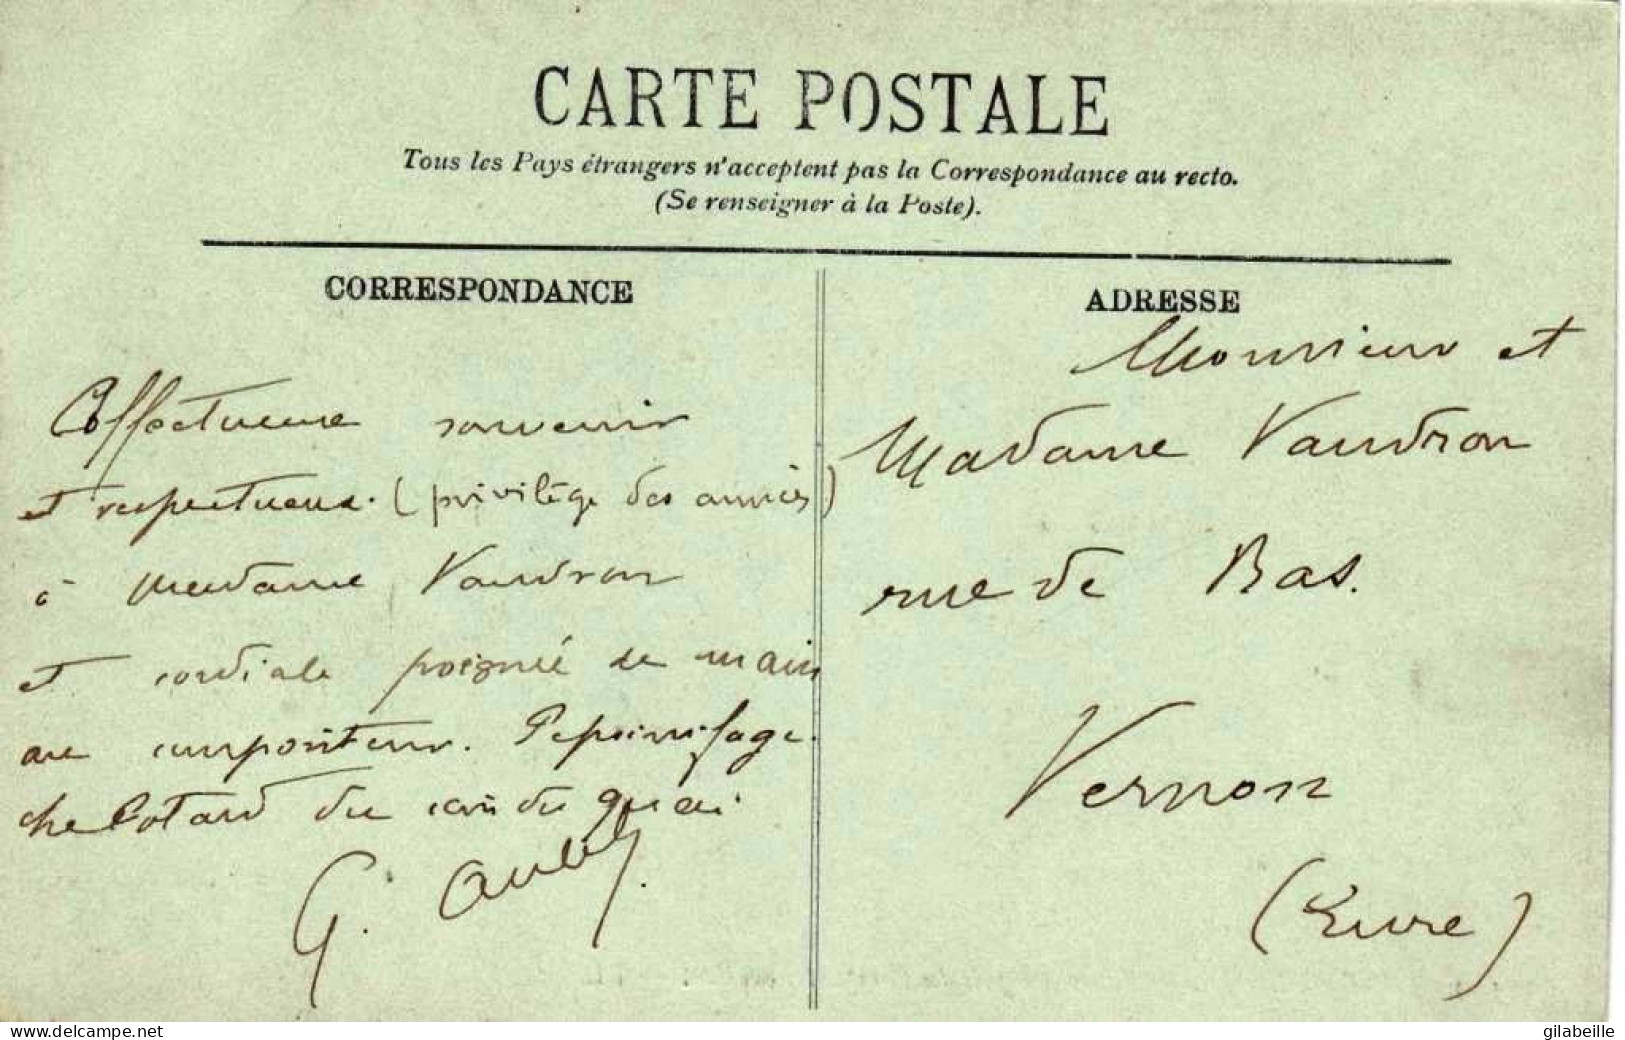 CARTE POSTALE
Tous les Pays étrangers n'acceptent pas la Correspondance au recto.
(Se renseigner à la Poste).
CORRESPONDANCE
Affectueux souvenir
et respectueux. (privilège des années)
à Madame Vaudron
et cordiale poignée de main
au compositeur.
du quai
G. Aubry.
ADRESSE
Monsieur et
Madame Vaudron
rue de Bas.
Vernon
(Eure)
www.delcampe.net
gilabeille